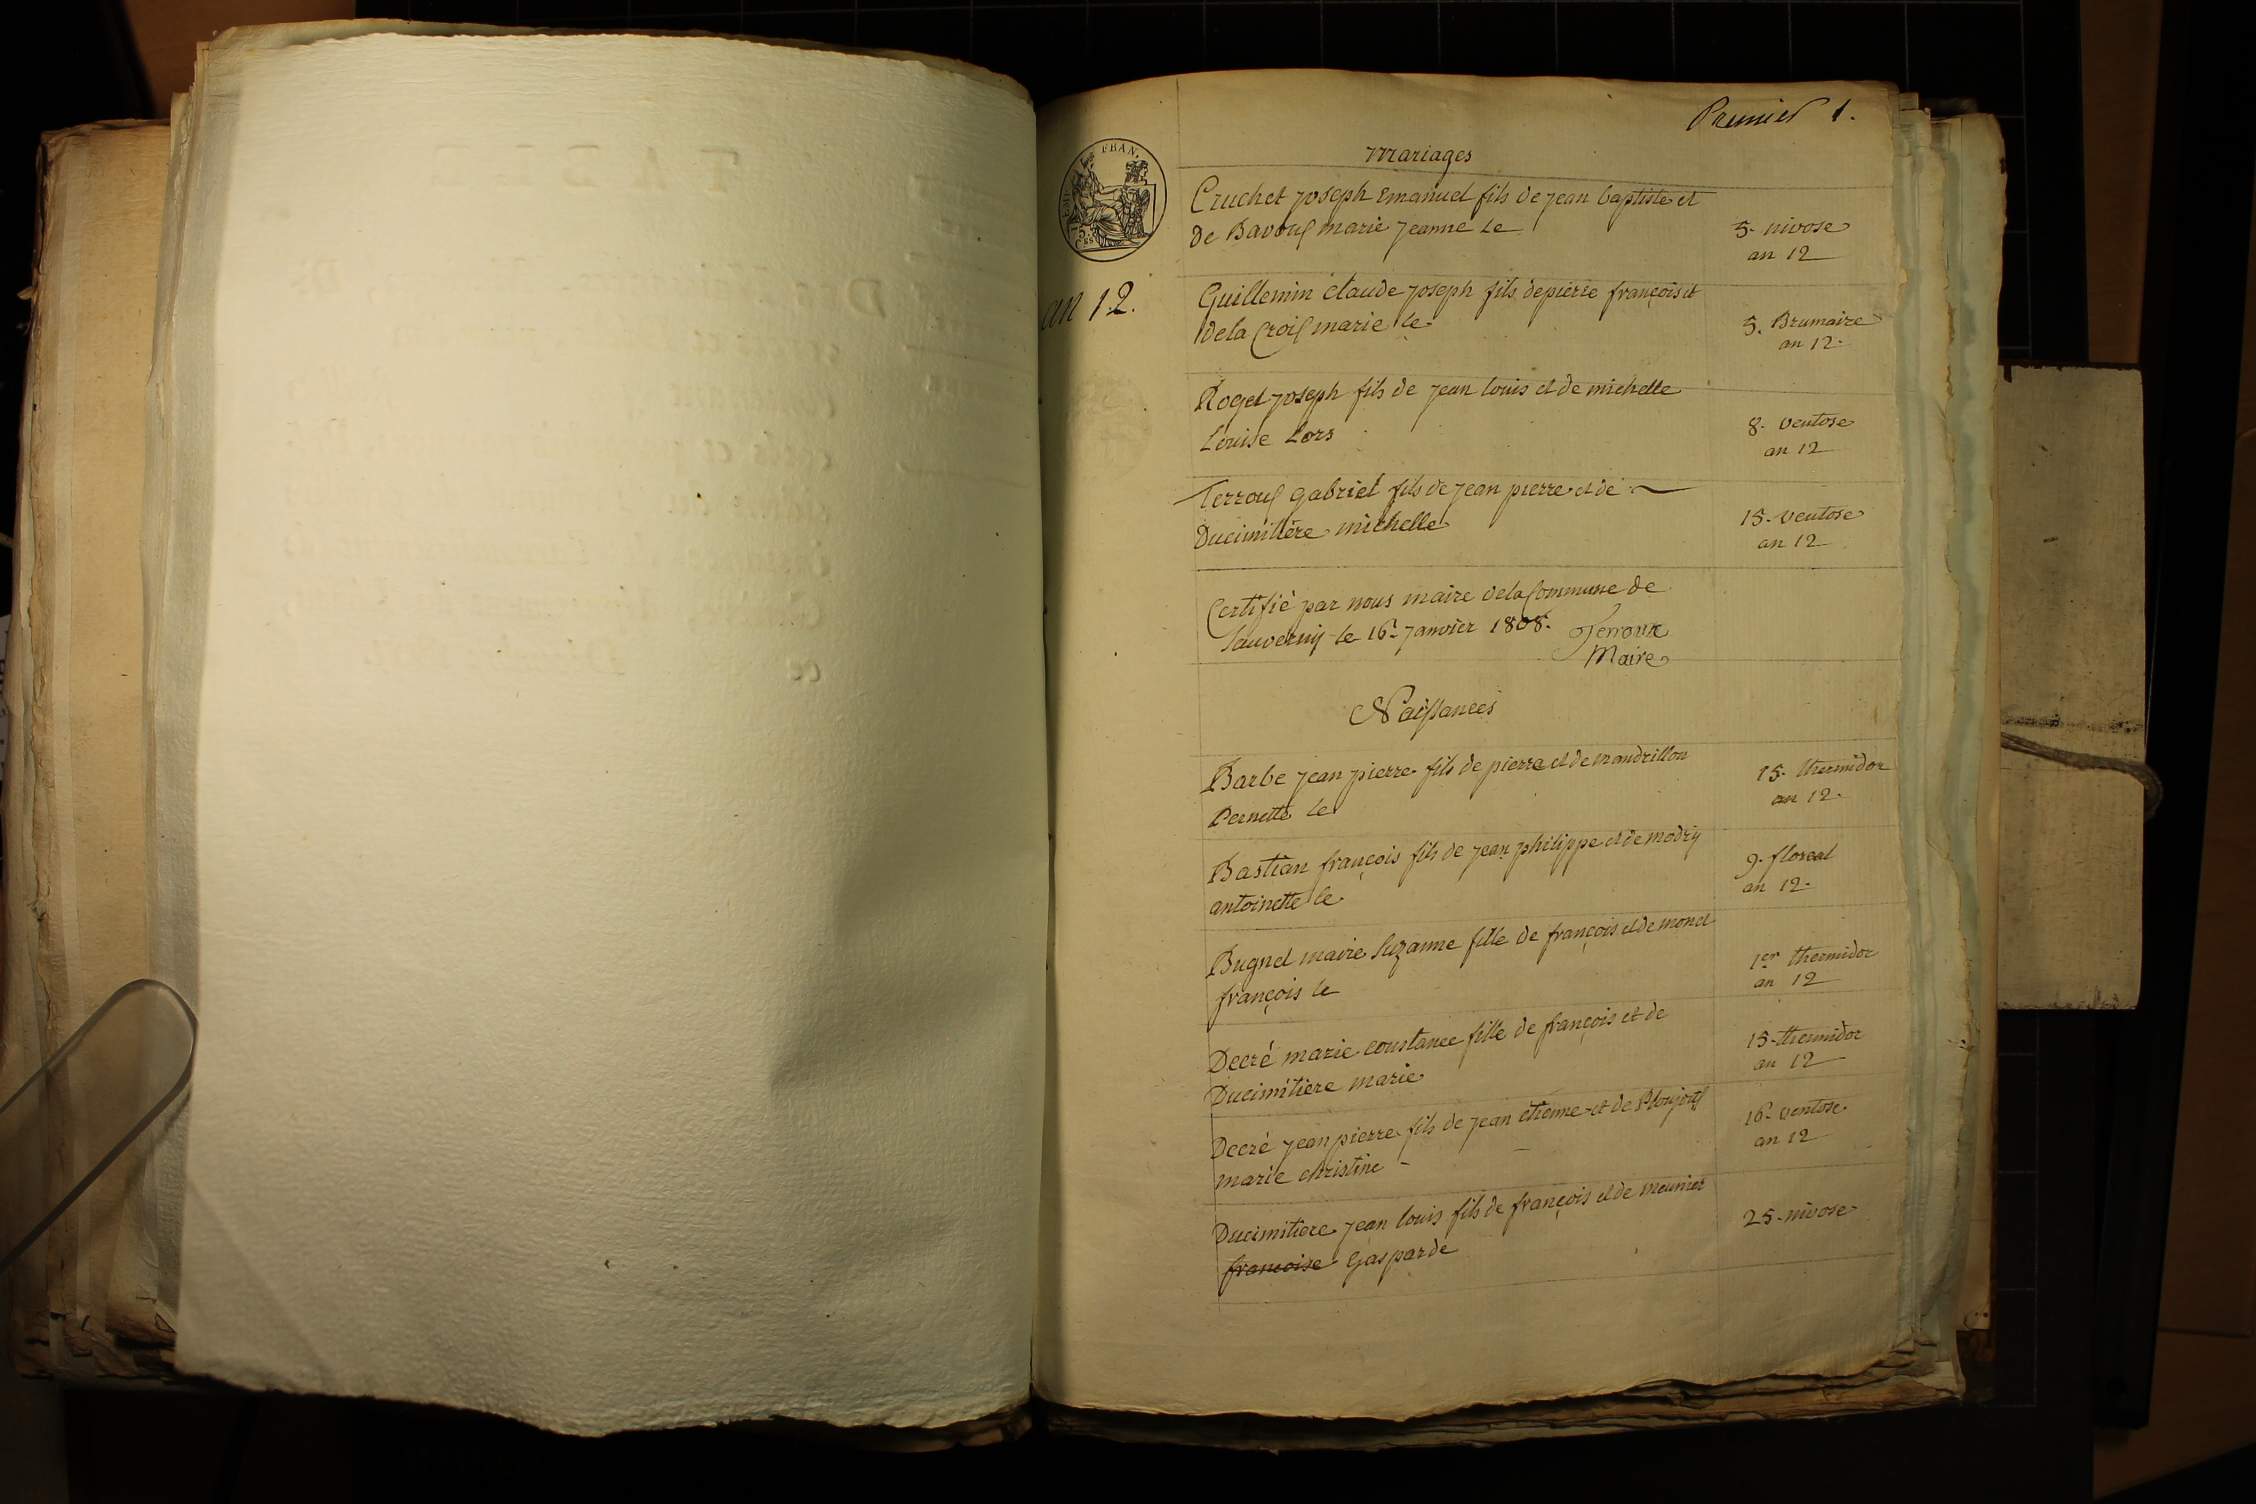 Premier 1.
EMP. FRAN.
5.
Ces
mariages
an 12.
Cruchet joseph Emanuel fils de jean baptiste et
de Bavoux marie jeanne le
5. nivose
an 12
Guillemin claude joseph fils de pierre françois et
de la Croix marie le
5. Brumaire
an 12.
Roget joseph fils de jean louis et de michelle
Louise Lors
8. ventose
an 12
Terroux gabriel fils de jean pierre et de
Ducimitière michelle
15. ventose
an 12
Certifié par nous maire de la Commune de
Sauverny le 16. janvier 1808. Terroux
Maire
Naissances
Barbe jean pierre fils de pierre et de mandrillon
Pernette le
15. thermidor
an 12.
Bastian françois fils de jean philippe et de modry
antoinette le
9. floreal
an 12.
Bugnet maire Suzanne fille de françois et de monet
françois le
1er thermidor
an 12
Decré marie constance fille de françois et de
Ducimitiere marie
15. thermidor
an 12
Decré jean pierre fils de jean étienne et de
marie christine
16. ventose
an 12
Ducimitiere jean louis fils de françois et de meunier
francoise Gasparde
25. nivose